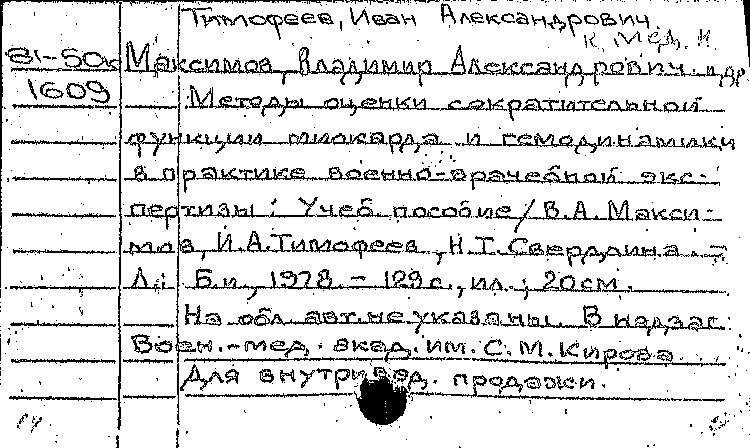 Тимофеев, Иван Александрович.
к. мед. н.
81-50к Максимов, Владимир Александрович и др.
1609 Методы оценки сократительной
функции миокарда и гемодинамики
в практике военно-врачебной экс-
пертизы: Учеб. пособие / В.А. Макси-
мов, И.А. Тимофеев, Н.Т. Свердлина. -
Л.: Б.и., 1978. - 129 с., ил.; 20 см.
На обл. авт. не указаны. В надзаг.:
Воен.-мед. акад. им. С.М. Кирова.
Для внутривед. продажи.